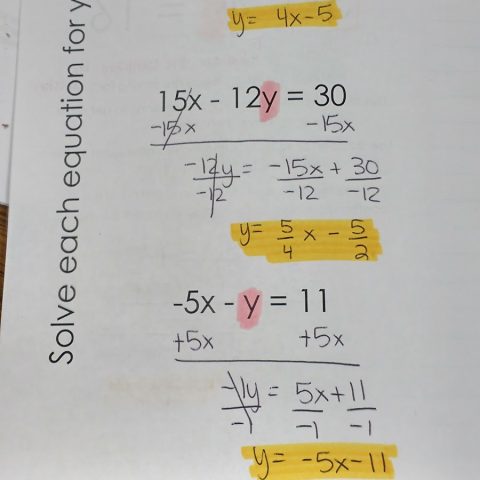 Solve each equation for y
y= 4x-5
15x - 12y = 30
-15x -15x
-12y = -15x + 30
-12 -12 -12
y= 5/4 x - 5/2
-5x - y = 11
+5x +5x
-1y = 5x+11
-1 -1 -1
y= -5x-11